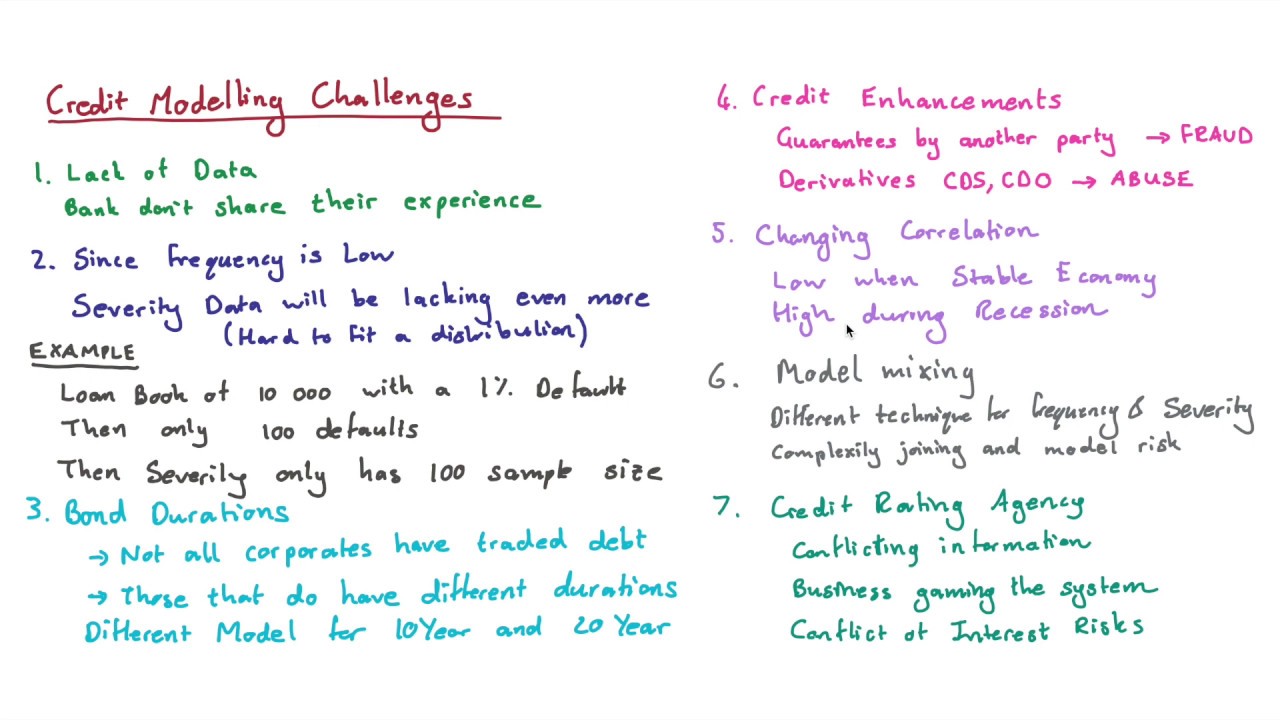 Credit Modelling Challenges
1. Lack of Data
Bank don't share their experience
2. Since frequency is Low
Severity Data will be lacking even more
(Hard to fit a distribution)
EXAMPLE
Loan Book of 10 000 with a 1% Default
Then only 100 defaults
Then Severity only has 100 sample size
3. Bond Durations
→ Not all corporates have traded debt
→ Those that do have different durations
Different Model for 10 Year and 20 Year
4. Credit Enhancements
Guarantees by another party → FRAUD
Derivatives CDS, CDO → ABUSE
5. Changing Correlation
Low when Stable Economy
High during Recession
6. Model mixing
Different technique for frequency & Severity
Complexily joining and model risk
7. Credit Rating Agency
Conflicting information
Business gaming the system
Conflict of Interest Risks